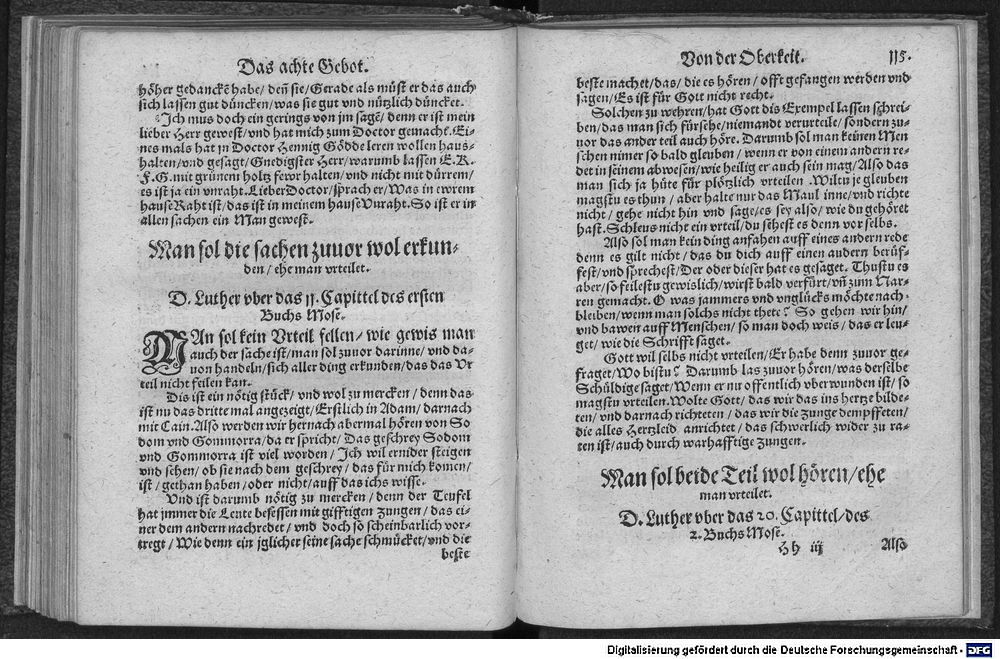 Das achte Gebot.
höher gedancke habe/ deñ sie/ Gerade als müst er das auch
sich lassen gut düncken/ was sie gut vnd nützlich düncket.
Ich mus doch ein gerings von jm sagē/ denn er ist mein
lieber Herr gewest/ vnd hat mich zum Doctor gemacht. Ei-
nes mals hat jn Doctor Hennig Gödde leren wollen haus-
halten/ vnd gesagt/ Gnedigster Herr/ warumb lassen E. K.
F. G. mit grünem holtz fewr halten/ vnd nicht mit dürrem/
es ist ja ein vnraht. Lieber Doctor/ sprach er/ Was in ewrem
hause Raht ist/ das ist in meinem hause Vnraht. So ist er in
allen sachen ein Man gewest.
Man sol die sachen zuuor wol erkun-
den/ ehe man vrteilet.
D. Luther vber das 11. Capittel des ersten
Buchs Mose.
MAn sol kein Vrteil fellen/ wie gewis man
auch der sache ist/ man sol zuuor darinne/ vnd da-
uon handeln/ sich aller ding erkunden/ das das Vr
teil nicht feilen kan.
Dis ist ein nötig stück/ vnd wol zu mercken/ denn das
ist nu das dritte mal angezeigt/ Erstlich in Adam/ darnach
mit Cain. Also werden wir hernach abermal hören von So
dom vnd Gommorra/ da er spricht/ Das geschrey Sodom
vnd Gommorra ist viel worden/ Ich wil ernider steigen
vnd sehen/ ob sie nach dem geschrey/ das für mich komen/
ist/ gethan haben/ oder nicht/ auff das ichs wisse.
Vnd ist darumb nötig zu mercken/ denn der Teufel
hat jmmer die Leute besessen mit gifftigen zungen/ das ei-
ner dem andern nachredet/ vnd doch so scheinbarlich vor-
tregt/ Wie denn ein jglicher seine sache schmücket/ vnd die
beste
Von der Oberkeit. 115.
beste machet/ das/ die es hören/ offt gefangen werden vnd
sagen/ Es ist für Gott nicht recht.
Solchen zu wehren/ hat Gott dis Exempel lassen schrei-
ben/ das man sich fürsehe/ niemandt verurteile/ sondern zu-
uor das ander teil auch höre. Darumb sol man keinen Men
schen nimer so bald gleuben/ wenn er von einem andern re-
det in seinem abwesen/ wie heilig er auch sein mag/ Also das
man sich ja hüte für plötzlich vrteilen. Wiltu je gleuben
magstu es thun/ aber halte nur das Maul inne/ vnd richte
nicht/ gehe nicht hin vnd sage/ es sey also/ wie du gehöret
hast. Schleus nicht ein vrteil/ du sehest es denn vor selbs.
Also sol man kein ding anfahen auff eines andern rede
denn es gilt nicht/ das du dich auff einen andern berüf-
fest/ vnd sprechest/ Der oder dieser hat es gesaget. Thustu es
aber/ so feilestu gewislich/ wirst bald verfürt/ vñ zum Nar-
ren gemacht. O was jammers vnd vnglücks möchte nach-
bleiben/ wenn man solchs nicht thete? So gehen wir hin/
vnd bawen auff Menschen/ so man doch weis/ das er leu-
get/ wie die Schrifft saget.
Gott wil selbs nicht vrteilen/ Er habe denn zuuor ge-
fraget/ Wo bistu? Darumb las zuuor hören/ was derselbe
Schüldige saget/ Wenn er nu offentlich vberwunden ist/ so
magstu vrteilen. Wolte Gott/ das wir das ins hertze bilde-
ten/ vnd darnach richteten/ das wir die zunge dempffeten/
die alles Hertzleid anrichtet/ das schwerlich wider zu ra-
ten ist/ auch durch warhafftige zungen.
Man sol beide Teil wol hören/ ehe
man vrteilet.
D. Luther vber das 20. Capittel/ des
2. Buchs Mose.
Hh iij Also
Digitalisierung gefördert durch die Deutsche Forschungsgemeinschaft - DFG